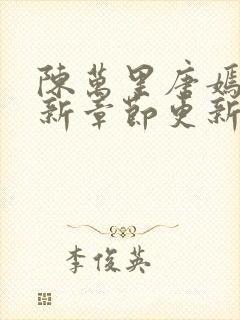 陳萬里唐嫣
新章節更新
李俊英